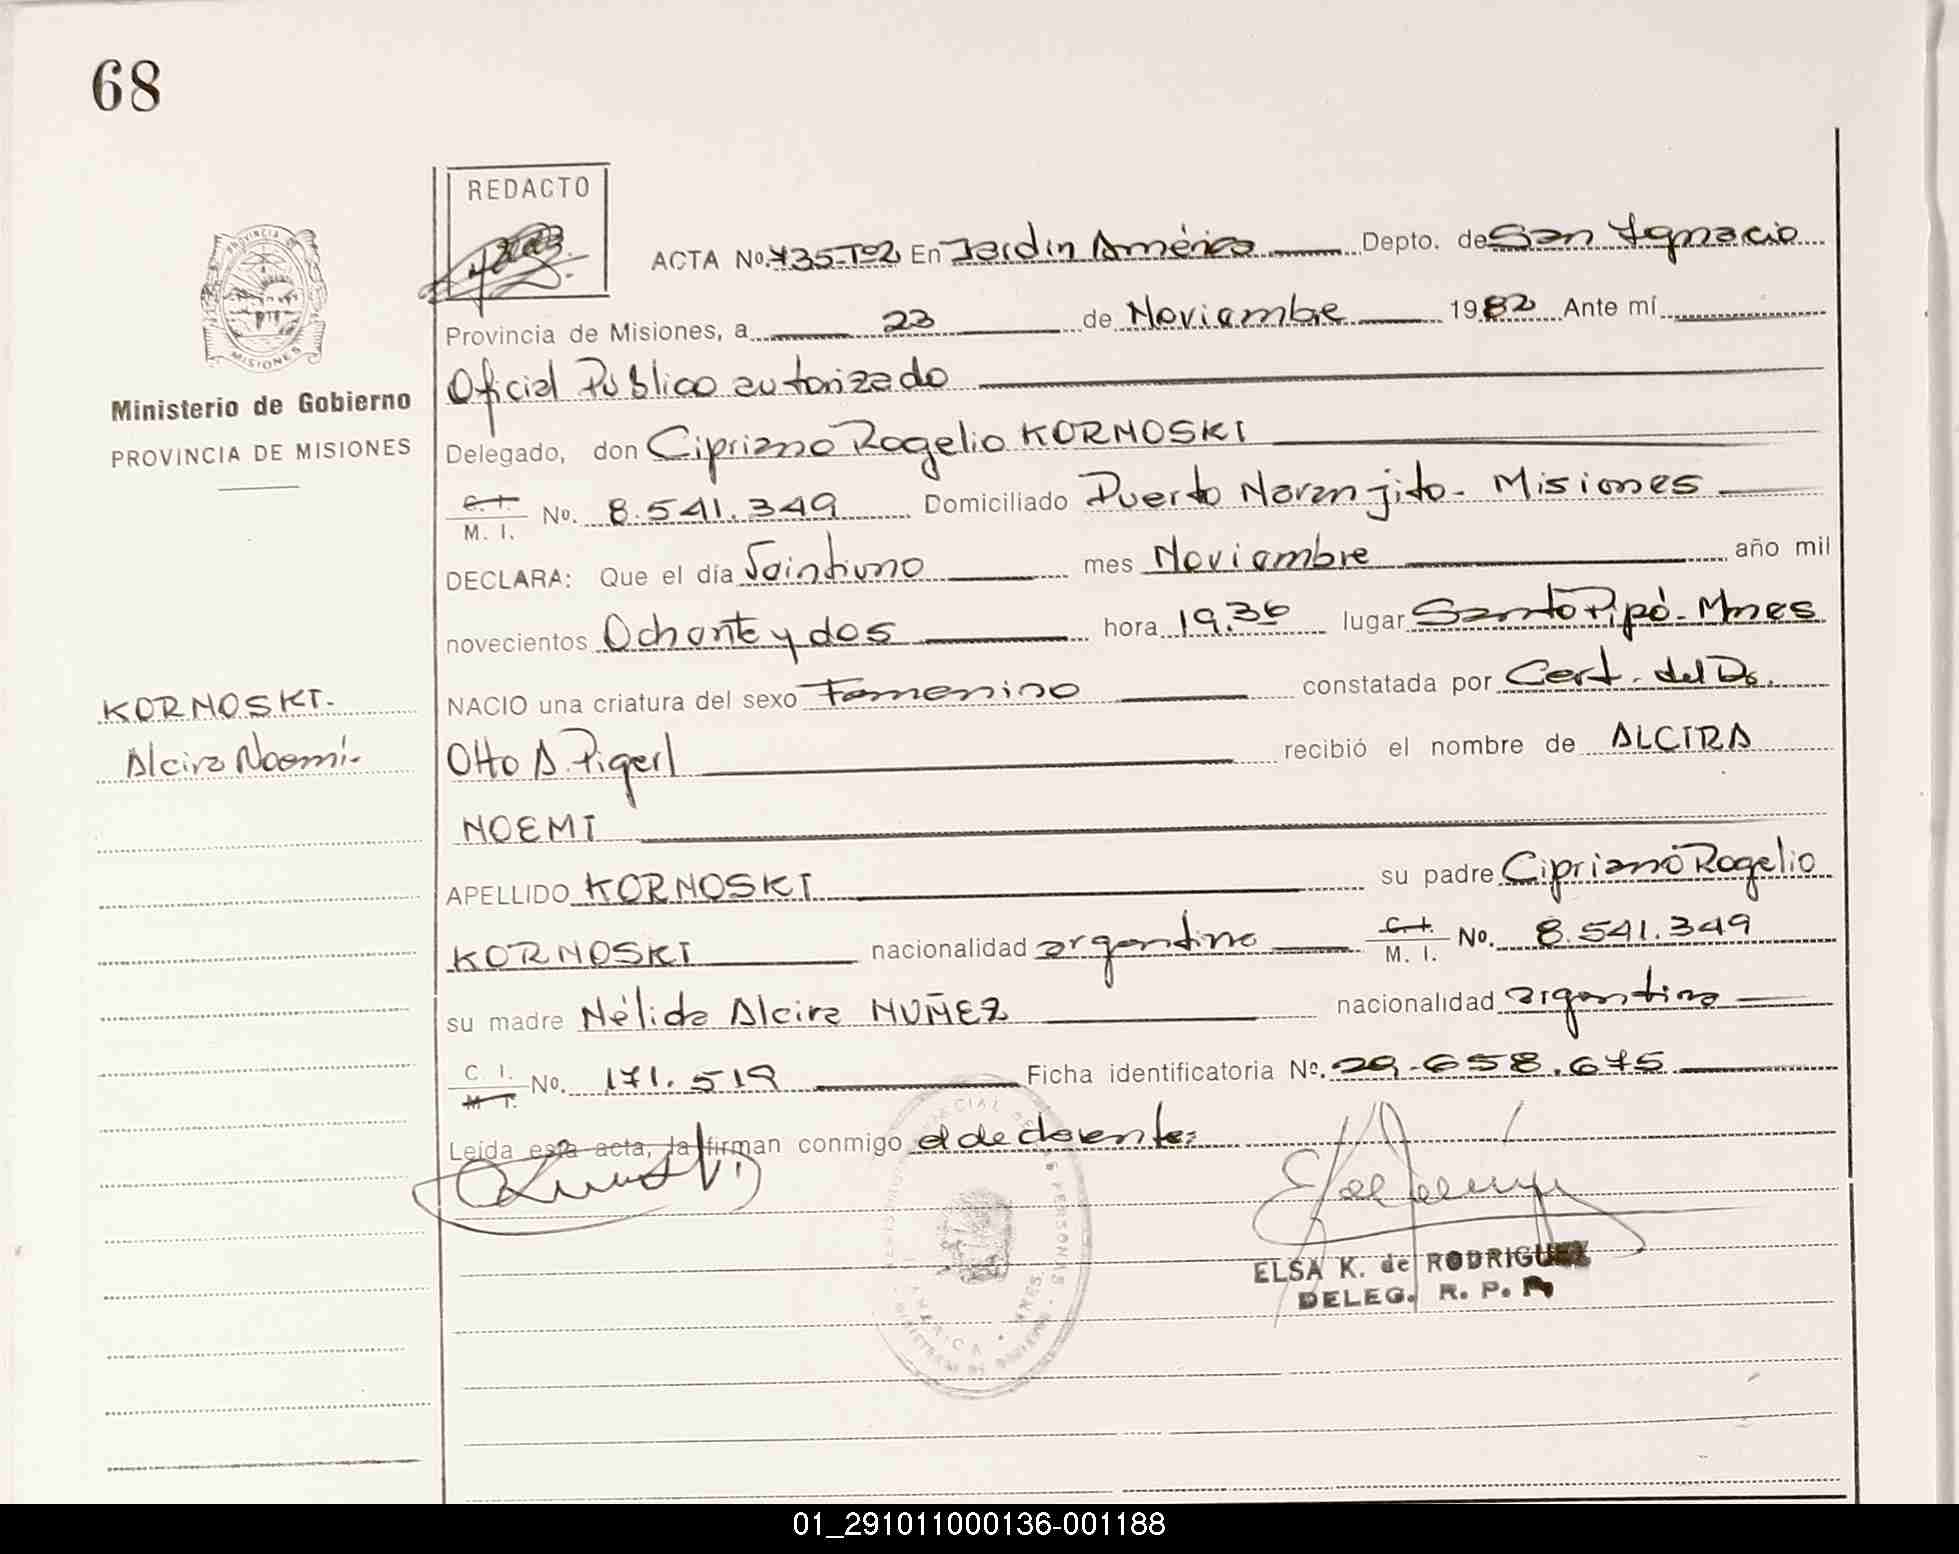 68
REDACTO
ACTA No. 735-Tº2 En Jardin América Depto. de San Ignacio
Provincia de Misiones, a 23 de Noviembre 1982 Ante mí
Oficial Público autorizado
Ministerio de Gobierno
PROVINCIA DE MISIONES
Delegado, don Cipriano Rogelio KORNOSKI
C. I.
M. I. No. 8.541.349 Domiciliado Puerto Naranjito - Misiones
DECLARA: Que el día Veintiuno mes Noviembre año mil
novecientos Ochenta y dos hora 19.36 lugar Santo Pipó - Mnes
NACIO una criatura del sexo Femenino constatada por Cert. del Dr.
KORNOSKI.
Alcira Noemí.-
Otto A. Pigerl recibió el nombre de ALCIRA
NOEMI
APELLIDO KORNOSKI su padre Cipriano Rogelio
KORNOSKI nacionalidad argentino C. I.
M. I. No. 8.541.349
su madre Nélida Alcira NUÑEZ nacionalidad argentina
C. I.
M. I. No. 171.519 Ficha identificatoria Nº. 29.658.675
Leída esta acta, la firman conmigo el declarante:
ELSA K. de RODRIGUEZ
DELEG. R. P.
01_291011000136-001188